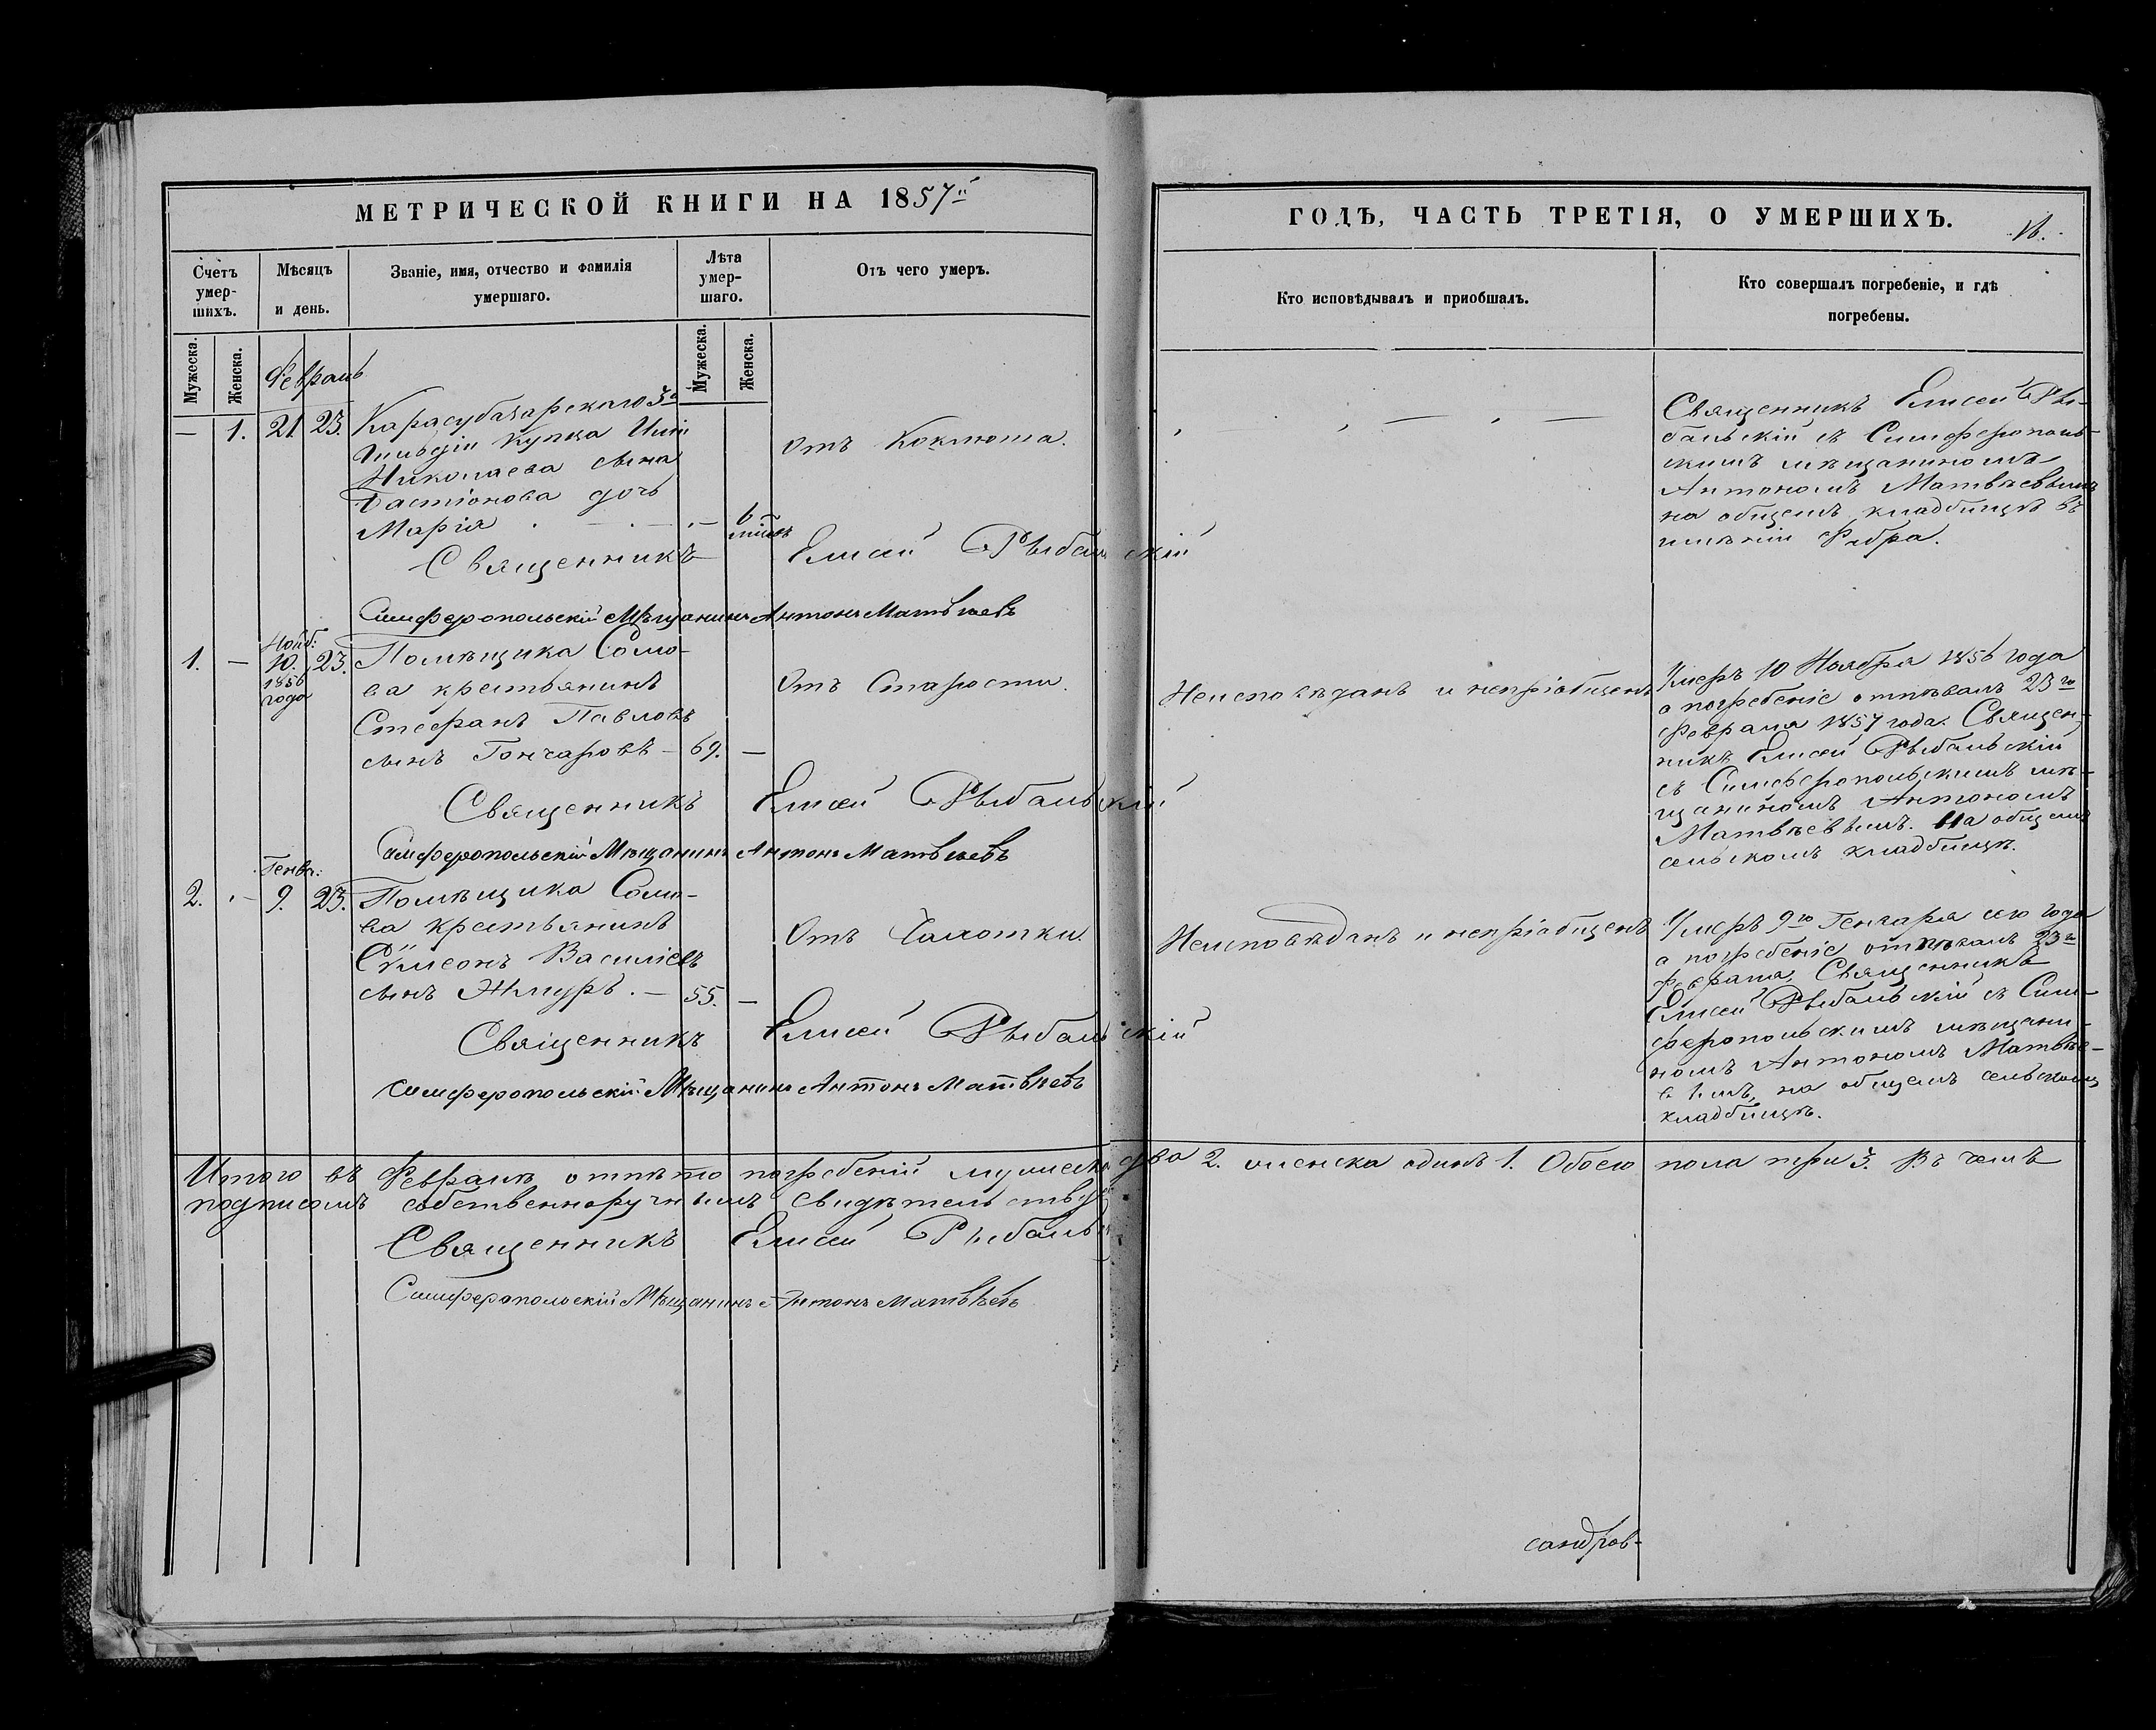 МЕТРИЧЕСКОЙ КНИГИ НА 1857й
Счетъ умер-шихъ.
Мѣсяцъ и день.
Званіе, имя, отчество и фамилія умершаго.
Лѣта умер-шаго.
Отъ чего умеръ.
Мужеска.
Женска.
Мужеска.
Женска.
Февраль
— 1. 21. 23. Карасубазарскаго 3й
гильдіи купца
Николаева сына
Бастіонова дочь
Марія . — . — . — 6
Отъ Коклюша.
Священникъ Елисей Рыбальскій
Симферопольскій Мѣщанинъ Антонъ Матвѣевъ
Нояб:
1. — 10. 23. Помѣщика Сомо-
1856
года
ва крестьянинъ
Отъ Старости.
Стефанъ Павловъ
сынъ Гончаровъ — 69. —
Священникъ Елисей Рыбальскій
Симферопольскій Мѣщанинъ Антонъ Матвѣевъ
Генва:
2. — 9. 23. Помѣщика Сомо-
ва крестьянинъ
Отъ Чахотки.
Сѵмеонъ Василіевъ
сынъ . — 55. —
Священникъ Елисей Рыбальскій
Симферопольскій Мѣщанинъ Антонъ Матвѣевъ
ГОДЪ, ЧАСТЬ ТРЕТІЯ, О УМЕРШИХЪ.
Кто исповѣдывалъ и приобшалъ.
Кто совершалъ погребеніе, и гдѣ погребены.
Священникъ Елисей Ры-
бальскій съ Симферополь-
скимъ мѣщаниномъ
Антономъ Матвѣевымъ
на общемъ кладбищѣ въ
имѣніи Фабра.
Неисповѣданъ и непріобщенъ
Умеръ 10 Ноября 1856 года
а погребеніе отпѣвалъ 23го
Февраля 1857 года. Священ-
никъ Елисей Рыбальскій
съ Симферопольскимъ мѣ-
щаниномъ Антономъ
Матвѣевымъ. На общемъ
сельскомъ кладбищѣ.
Неисповѣданъ и непріобщенъ
Умеръ 9го Генваря сего года
а погребеніе отпѣвалъ 23го
Февраля, Священникъ
Елисей Рыбальскій съ Сим-
феропольскимъ мѣщани-
номъ Антономъ Матвѣе-
вымъ, на общемъ сельскомъ
кладбищѣ.
Итого въ Февралѣ отпѣто погребеній мужеска два 2. женска одинъ 1. Обоего пола три 3. Въ чемъ
подписомъ собственноручнымъ свидѣтельствуемъ
Священникъ Елисей Рыбальскій
Симферопольскій Мѣщанинъ Антонъ Матвѣевъ
сандров-